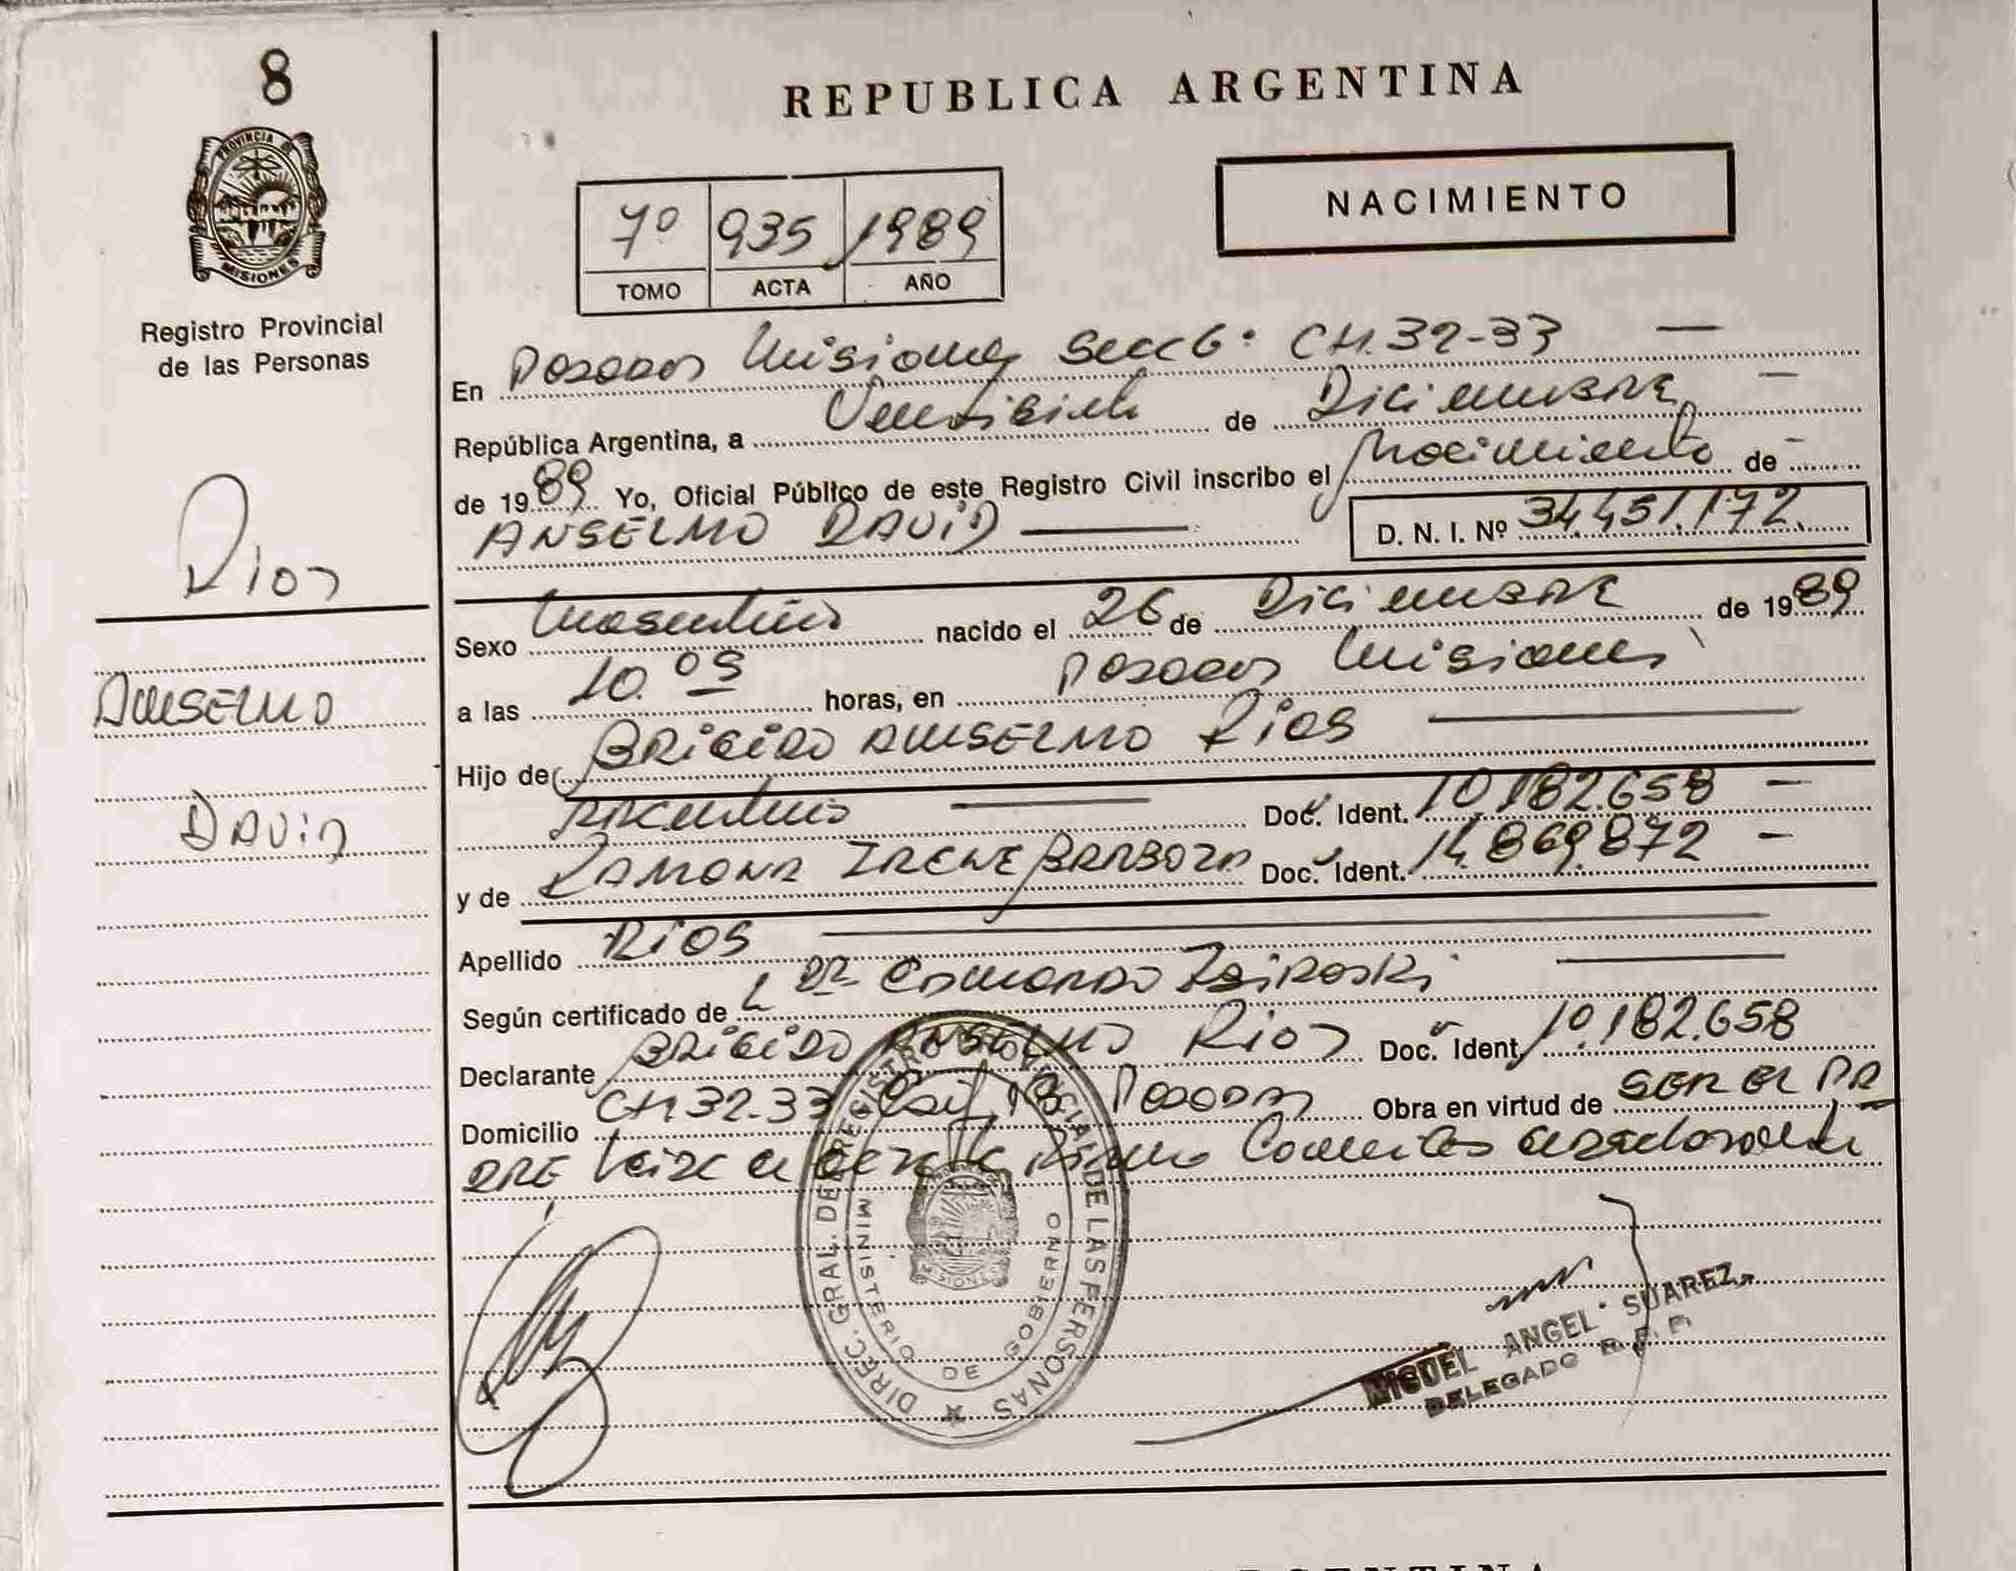 8
PROVINCIA DE
MISIONES
Registro Provincial
de las Personas
Rios
ANSELMO
DAVID
REPUBLICA ARGENTINA
NACIMIENTO
7º 935 1989
TOMO ACTA AÑO
En Posadas Misiones Secc 6ª CH. 32-33
República Argentina, a Veintisiete de Diciembre
de 1989 Yo, Oficial Público de este Registro Civil inscribo el Nacimiento de
ANSELMO DAVID D. N. I. Nº 34.451.172.
Sexo Masculino nacido el 26 de Diciembre de 1989
a las 10.05 horas, en Posadas Misiones
Hijo de BRIGIDO ANSELMO RIOS
Argentino Doc. Ident. 10.182.658
y de RAMONA IRENE BARBOZA Doc. Ident. 14.869.872
Apellido RIOS
Según certificado de
Declarante BRIGIDO ANSELMO RIOS Doc. Ident. 10.182.658
Domicilio CH 32-33 Posadas Obra en virtud de SER EL PA
DRE
DIREC. GRAL. DE REGISTRO PROVINCIAL DE LAS PERSONAS
MINISTERIO DE GOBIERNO
MISIONES
MIGUEL ANGEL SUAREZ
DELEGADO R. P. P.
ARGENTINA